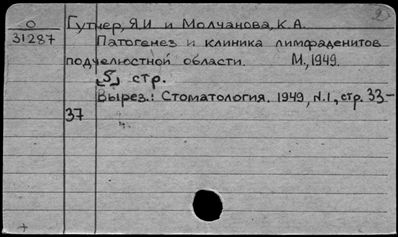 О
31287
Гутнер, Я.И. и Молчанова, К.А.
Патогенез и клиника лимфаденитов
подчелюстной области. М., 1949.
5 стр.
Вырез.: Стоматология. 1949, N.1, стр. 33-
37